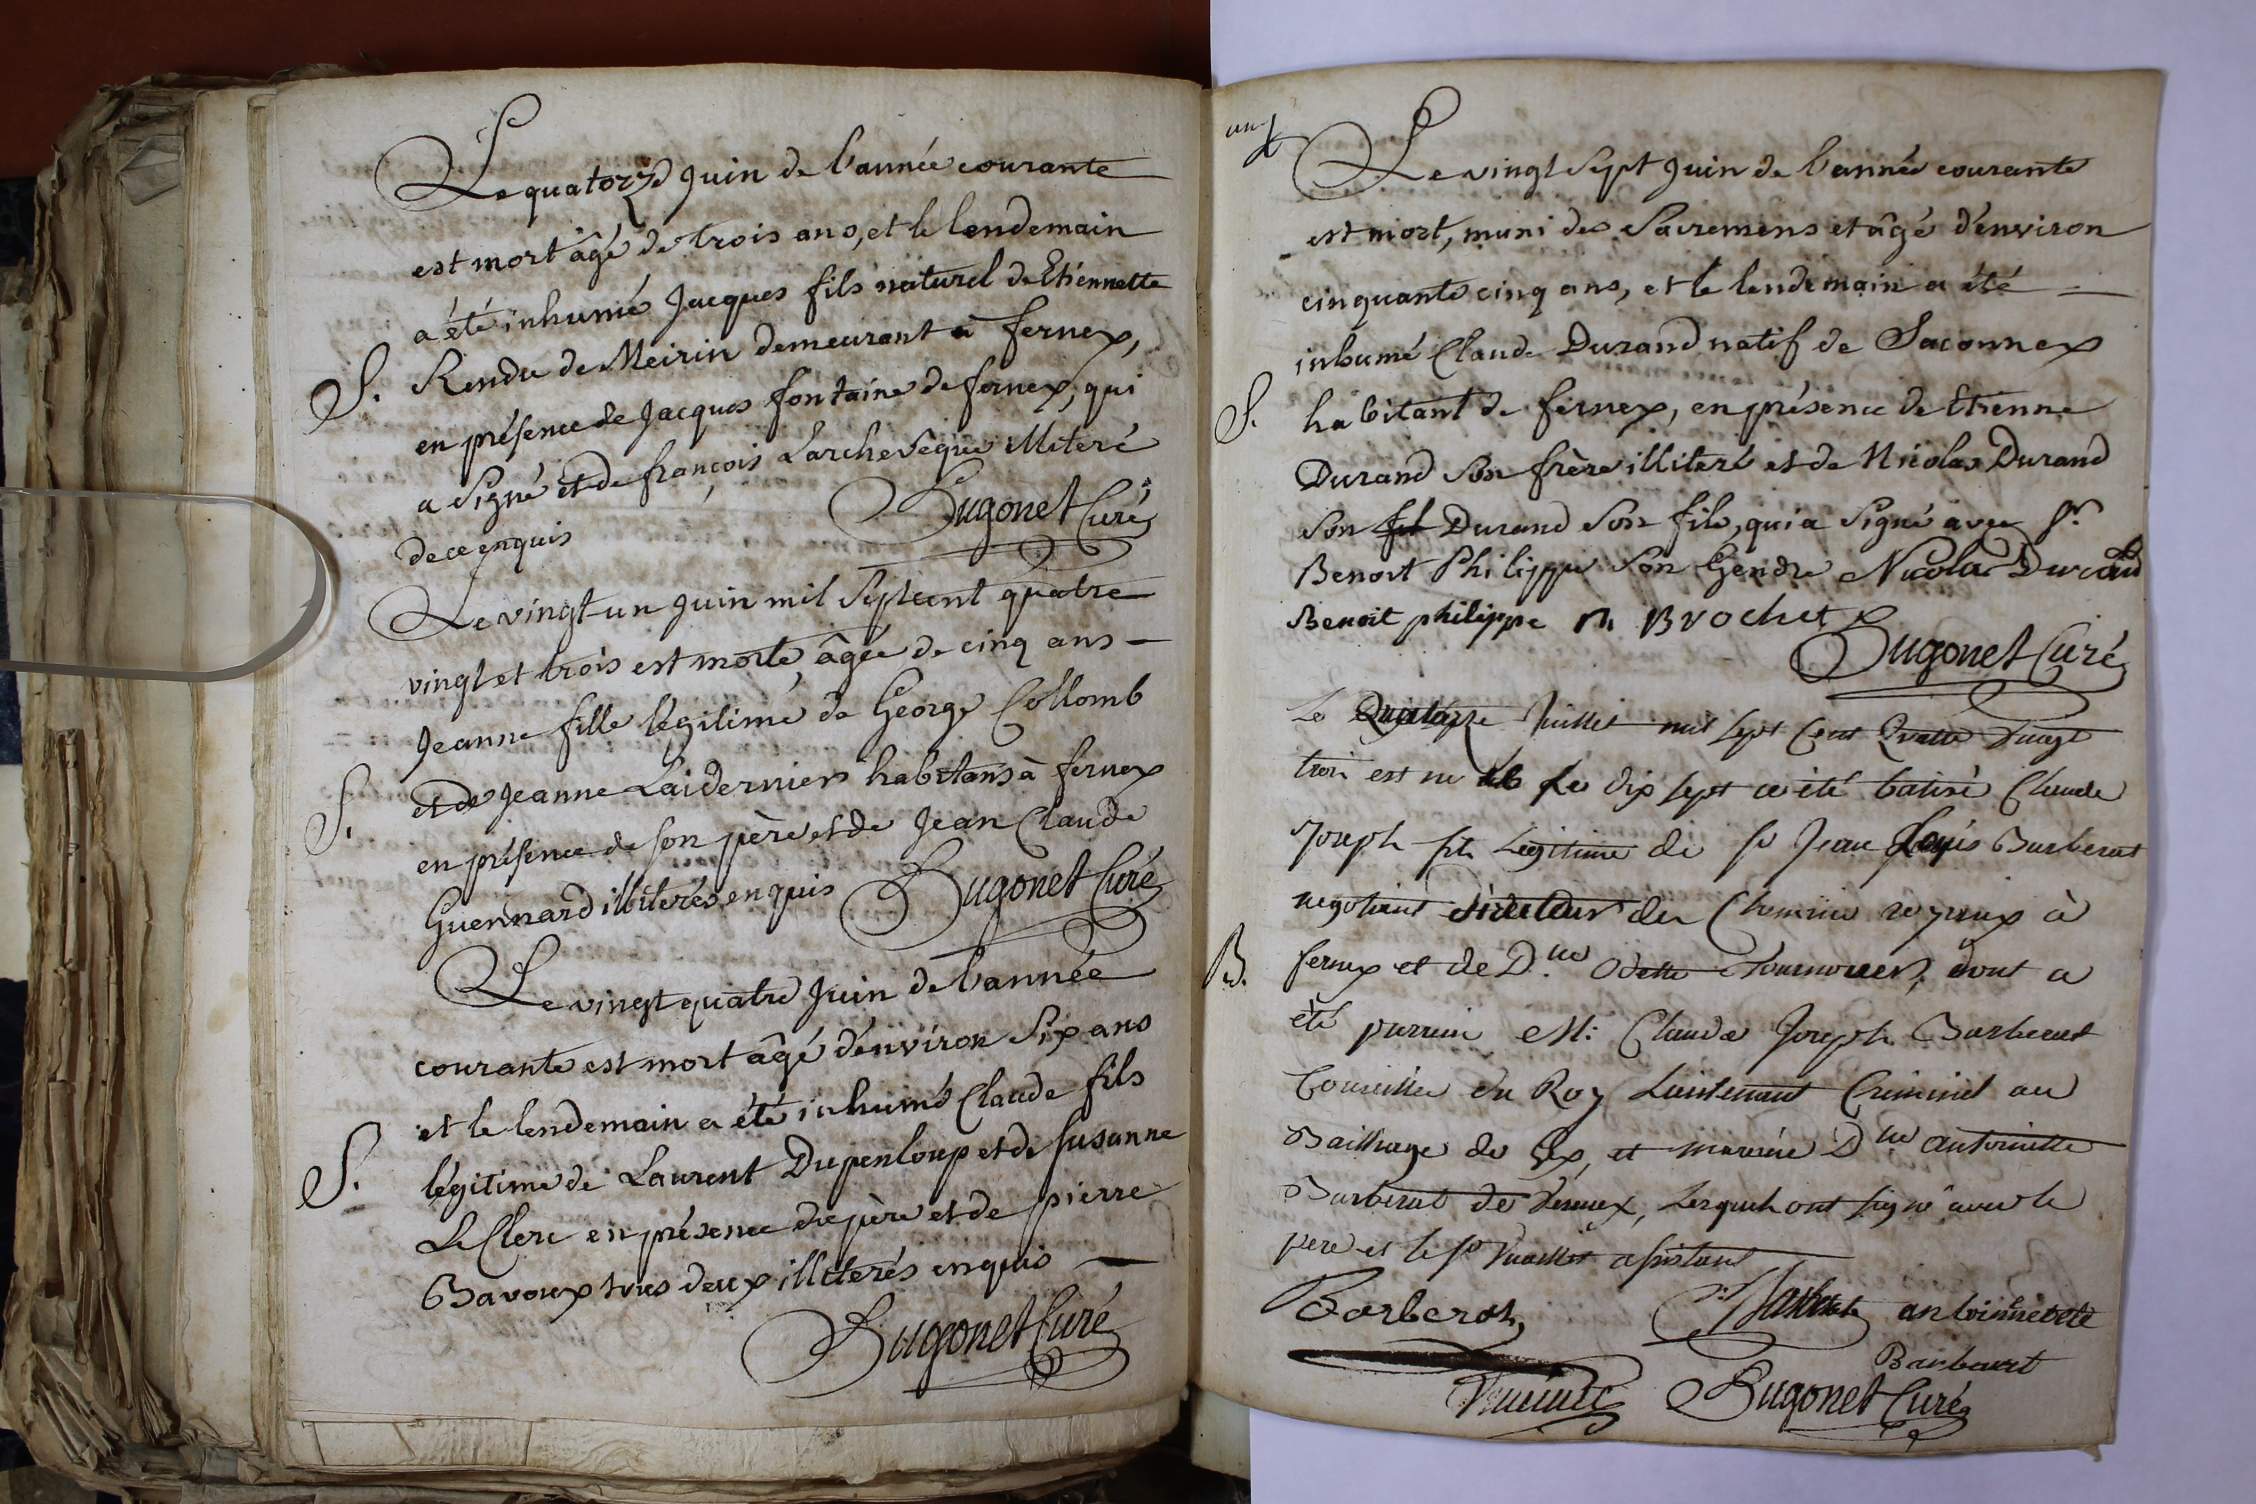 Le quatorze juin de l'année courante
est mort âgé de trois ans, et le lendemain
a été inhumé Jacques fils naturel de Etiennette
S. Rendu de Meirin demeurant à fernex,
en présence de Jacques fontaine de fernex, qui
a signé et de françois Larchevêque illiteré
de ce enquis
Hugonet Curé
Le vingt un juin mil septcent quatre
vingt et trois est morte, âgée de cinq ans
Jeanne fille légitime de George Collomb
S. et de Jeanne Laidernier habitans à fernex
en présence de son père et de Jean Claude
Guennard illiterés enquis Hugonet Curé
Le vingt quatre juin de l'année
courante est mort âgé d'environ six ans
et le lendemain a été inhumé Claude fils
S. légitime de Laurent Dupenloup et de susanne
LeClerc en présence du père et de pierre
Bavoux tous deux illiterés enquis
Hugonet Curé
Le vingt sept juin de l'année courante
est mort, muni des Sacremens et âgé d'environ
cinquante cinq ans, et le lendemain a été
inhumé Claude Durand natif de Saconnex
S. habitant de fernex, en présence de Etienne
Durand son frère illiteré et de Nicolas Durand
son fil Durand son fils, qui a signé avec sr.
Benoit Philippe son Gendre Nicolas Durand
Benoit philippe n Brochet
Hugonet Curé
Le Quatorze Juillet mil sept Cent Quatre vingt
trois est né Le dix sept a été batisé Claude
Joseph fils Legitime de sr Jean Louis Barberat
negotiant directeur des Chemins royaux à
B. fernex et de D.lle Odette Fournier, dont a
été parrein M: Claude Joseph Barberat
Conseiller du Roy Lieutenant Criminel au
Bailliage de Gex, et mareine D.lle antoinette
Barberat de fernex, Lesquels ont signé avec le
pere et le sr Vuaillet assistant
Barberat antoinette
Barberat
Hugonet Curé